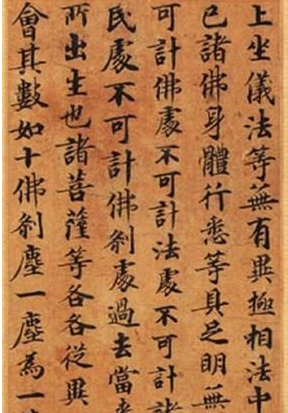 上坐儀法等無有異極相法中
已諸佛身體行悉等具足明無
可計佛處不可計法處不可計諸
民處不可計佛剎處過去當來
所出生也諸菩薩等各各從異
會其數如十佛剎塵一塵為一